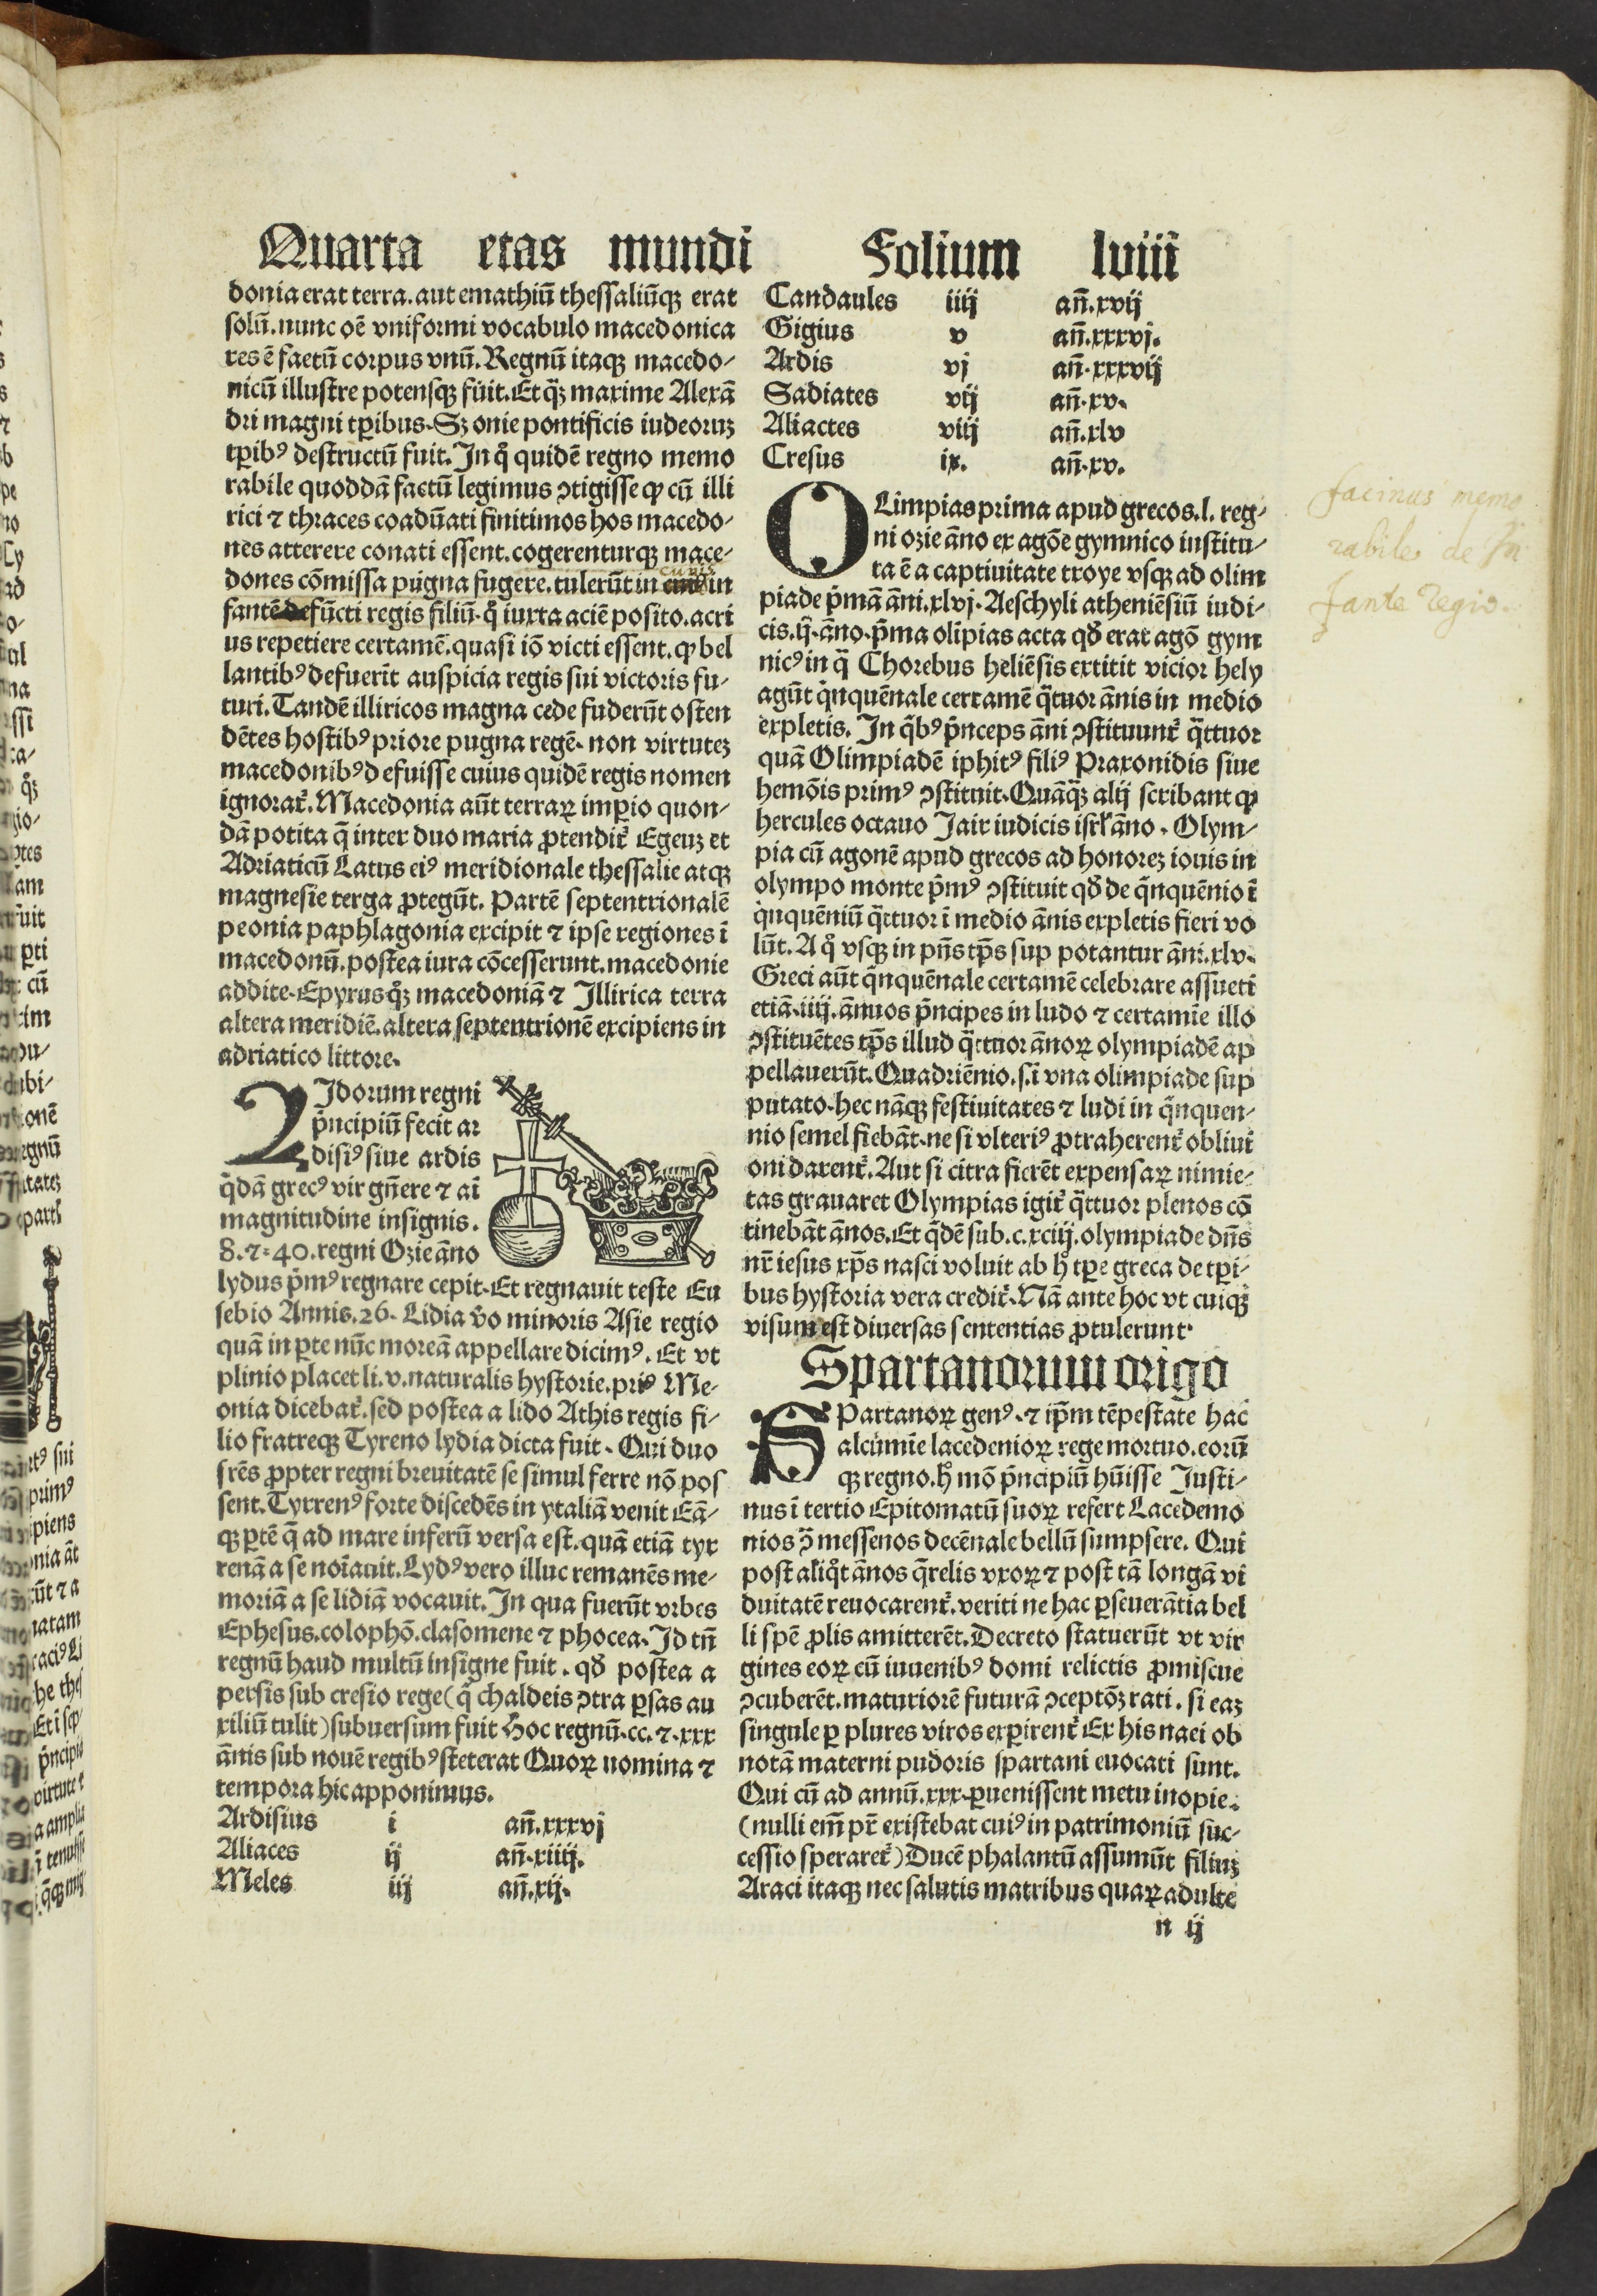 Quarta etas mundi Folium lviii
donia erat terra. aut emathiū thessaliūqꝫ erat
solū. nunc oē vniformi vocabulo macedonica
res ē factū corpus vnū. Regnū itaqꝫ macedo⸗
nicū illustre potensqꝫ fuit. Et qꝫ maxime Alexā
dri magni tp̄ibus. Sꝫ onie pontificis iudeoruꝫ
tp̄ibꝰ destructū fuit. In qͦ quidē regno memo
rabile quoddā factū legimus ↄtigisse ꝙ cū illi
rici ⁊ thraces coadūati finitimos hos macedo⸗
nes atterere conati essent. cogerenturqꝫ mace⸗
dones cōmissa pugna fugere. tulerūt in cunis in
fantē defūcti regis filiū. q̄ iuxta aciē posito. acri
us repetiere certamē. quasi iō victi essent. ꝙ bel
lantibꝰ defuerīt auspicia regis sui victoris fu⸗
turi. Tandē illiricos magna cede fuderūt osten
dētes hostibꝰ priore pugna regē. non virtuteꝫ
macedonibꝰ defuisse cuius quidē regis nomen
ignorat̄. Macedonia aūt terraꝝ imp̄io quon⸗
dā potita q̄ inter duo maria ꝓtendit̄ Egeuꝫ et
Adriaticū Latus eiꝰ meridionale thessalie atqꝫ
magnesie terga ꝓtegūt. Partē septentrionalē
peonia paphlagonia excipit ⁊ ipse regiones ī
macedonū. postea iura cōcesserunt. macedonie
addite. Epyrus qꝫ macedoniā ⁊ Illirica terra
altera meridiē. altera septentrionē excipiens in
adriatico littore.
LIdorum regni
pͥncipiū fecit ar
disiꝰ siue ardis
q̄dā grecꝰ vir gn̄ere ⁊ ai
magnitudine insignis.
8.⁊⸗40. regni Ozie āno
lydus pͥmꝰ regnare cepit. Et regnauit teste Eu
sebio Annis. 26. Lidia v̄o minoris Asie regio
quā in ꝑte nūc moreā appellare dicimꝰ. Et vt
plinio placet li. v. naturalis hystorie. priꝰ Me⸗
onia dicebat̄. sed postea a lido Athis regis fi⸗
lio fratreqꝫ Tyreno lydia dicta fuit. Qui duo
frēs ꝓpter regni breuitatē se simul ferre nō pos
sent. Tyrrenꝰ forte discedēs in ytaliā venit Eā⸗
qꝫ ꝑtē q̄ ad mare inferū versa est. quā etiā tyr
renā a se noīauit. Lydꝰ vero illuc remanēs me⸗
moriā a se lidiā vocauit. In qua fuerūt vrbes
Ephesus. colophō. clasomene ⁊ phocea. Id tn̄
regnū haud multū insigne fuit. qđ postea a
persis sub cresio rege (q̄ chaldeis ↄtra ꝑsas au
xiliū tulit) subuersum fuit Hoc regnū. cc. ⁊. xxx
ānis sub nouē regibꝰ steterat Quoꝝ nomina ⁊
tempora hic apponimus.
Ardisius i an̄. xxxvj
Aliaces ij an̄. xiiij.
Meles iij an̄. xij.
Candaules iiij an̄. xvij
Gigius v an̄. xxxvj.
Ardis vj an̄. xxxvij
Sadiates vij an̄. xv.
Aliactes viij an̄. xlv
Cresus ix. an̄. xv.
OLimpias prima apud grecos. l. reg⸗
ni ozie āno ex agōe gymnico institu⸗
ta ē a captiuitate troye vsqꝫ ad olim
piade pͥmā āni. xlvj. Aeschyli atheniēsiū iudi⸗
cis. ij. āno. pͥma olīpias acta qđ erat agō gym
nicꝰ in q̄ Chorebus heliēsis extitit victor hely
agūt qͥnquēnale certamē q̄ttuor ānis in medio
expletis. In qͥbꝰ pͥnceps āni ↄstituunt̄ q̄ttuor
quā Olimpiadē iphitꝰ filiꝰ Praxonidis siue
hemōis primꝰ ↄstituit. Quāqꝫ alij scribant ꝙ
hercules octauo Jair iudicis isrl̄ āno. Olym⸗
pia cū agonē apud grecos ad honoreꝫ iouis in
olympo monte pͥmꝰ ↄstituit qđ de qͥnquēnio ī
qͥnquēniū q̄ttuor ī medio ānis expletis fieri vo
lūt. A qͦ vsqꝫ in pn̄s tp̄s sup potantur āni. xlv.
Greci aūt qͥnquēnale certamē celebrare assueti
etiā. iiij. ānuos pͥncipes in ludo ⁊ certamīe illo
ↄstituētes tp̄s illud q̄ttuor ānoꝝ olympiadē ap
pellauerūt. Quadriēnio. s. ī vna olimpiade sup
putato. hec nāqꝫ festiuitates ⁊ ludi in qͥnquen⸗
nio semel fiebāt. ne si vlteriꝰ ꝓtraherent̄ obliui
oni darent̄. Aut si citra fierēt expensaꝝ nimie⸗
tas grauaret Olympias igit̄ q̄ttuor plenos cō
tinebāt ānos. Et qͥdē sub. c. xciiij. olympiade dn̄s
nr̄ iesus xp̄s nasci voluit ab hͦ tp̄e greca de tp̄i⸗
bus hystoria vera credit̄. Nā ante hoc vt cuiqꝫ
visum est diuersas sententias ꝓtulerunt.
Spartanorum origo
SPartanoꝝ genꝰ. ⁊ ip̄m tēpestate hac
alcumīe lacedenioꝝ rege mortuo. eorū
qꝫ regno. hͦ mō pͥncipiū hūisse Justi⸗
nus ī tertio Epitomatū suoꝝ refert Lacedemo
nios ↄ̄ messenos decēnale bellū sumpsere. Qui
post aliqͦt ānos q̄relis vxoꝝ ⁊ post tā longā vi
duitatē reuocarent̄. veriti ne hac ꝑseuerātia bel
li spē ꝓlis amitterēt. Decreto statuerūt vt vir
gines eoꝝ cū iuuenibꝰ domi relictis ꝓmiscue
ↄcuberēt. maturiorē futurā ↄceptōꝫ rati. si eaꝫ
singule ꝑ plures viros expirent̄ Ex his naci ob
notā materni pudoris spartani euocati sunt.
Qui cū ad annū. xxx. ꝑuenissent metu inopie.
(nulli em̄ pr̄ existebat cuiꝰ in patrimoniū suc⸗
cessio speraret̄) Ducē phalantū assumūt filiuꝫ
Araci itaqꝫ nec salutis matribus quaꝝ adulte
n ij
facinus memo
rabile de In
fante Regio.